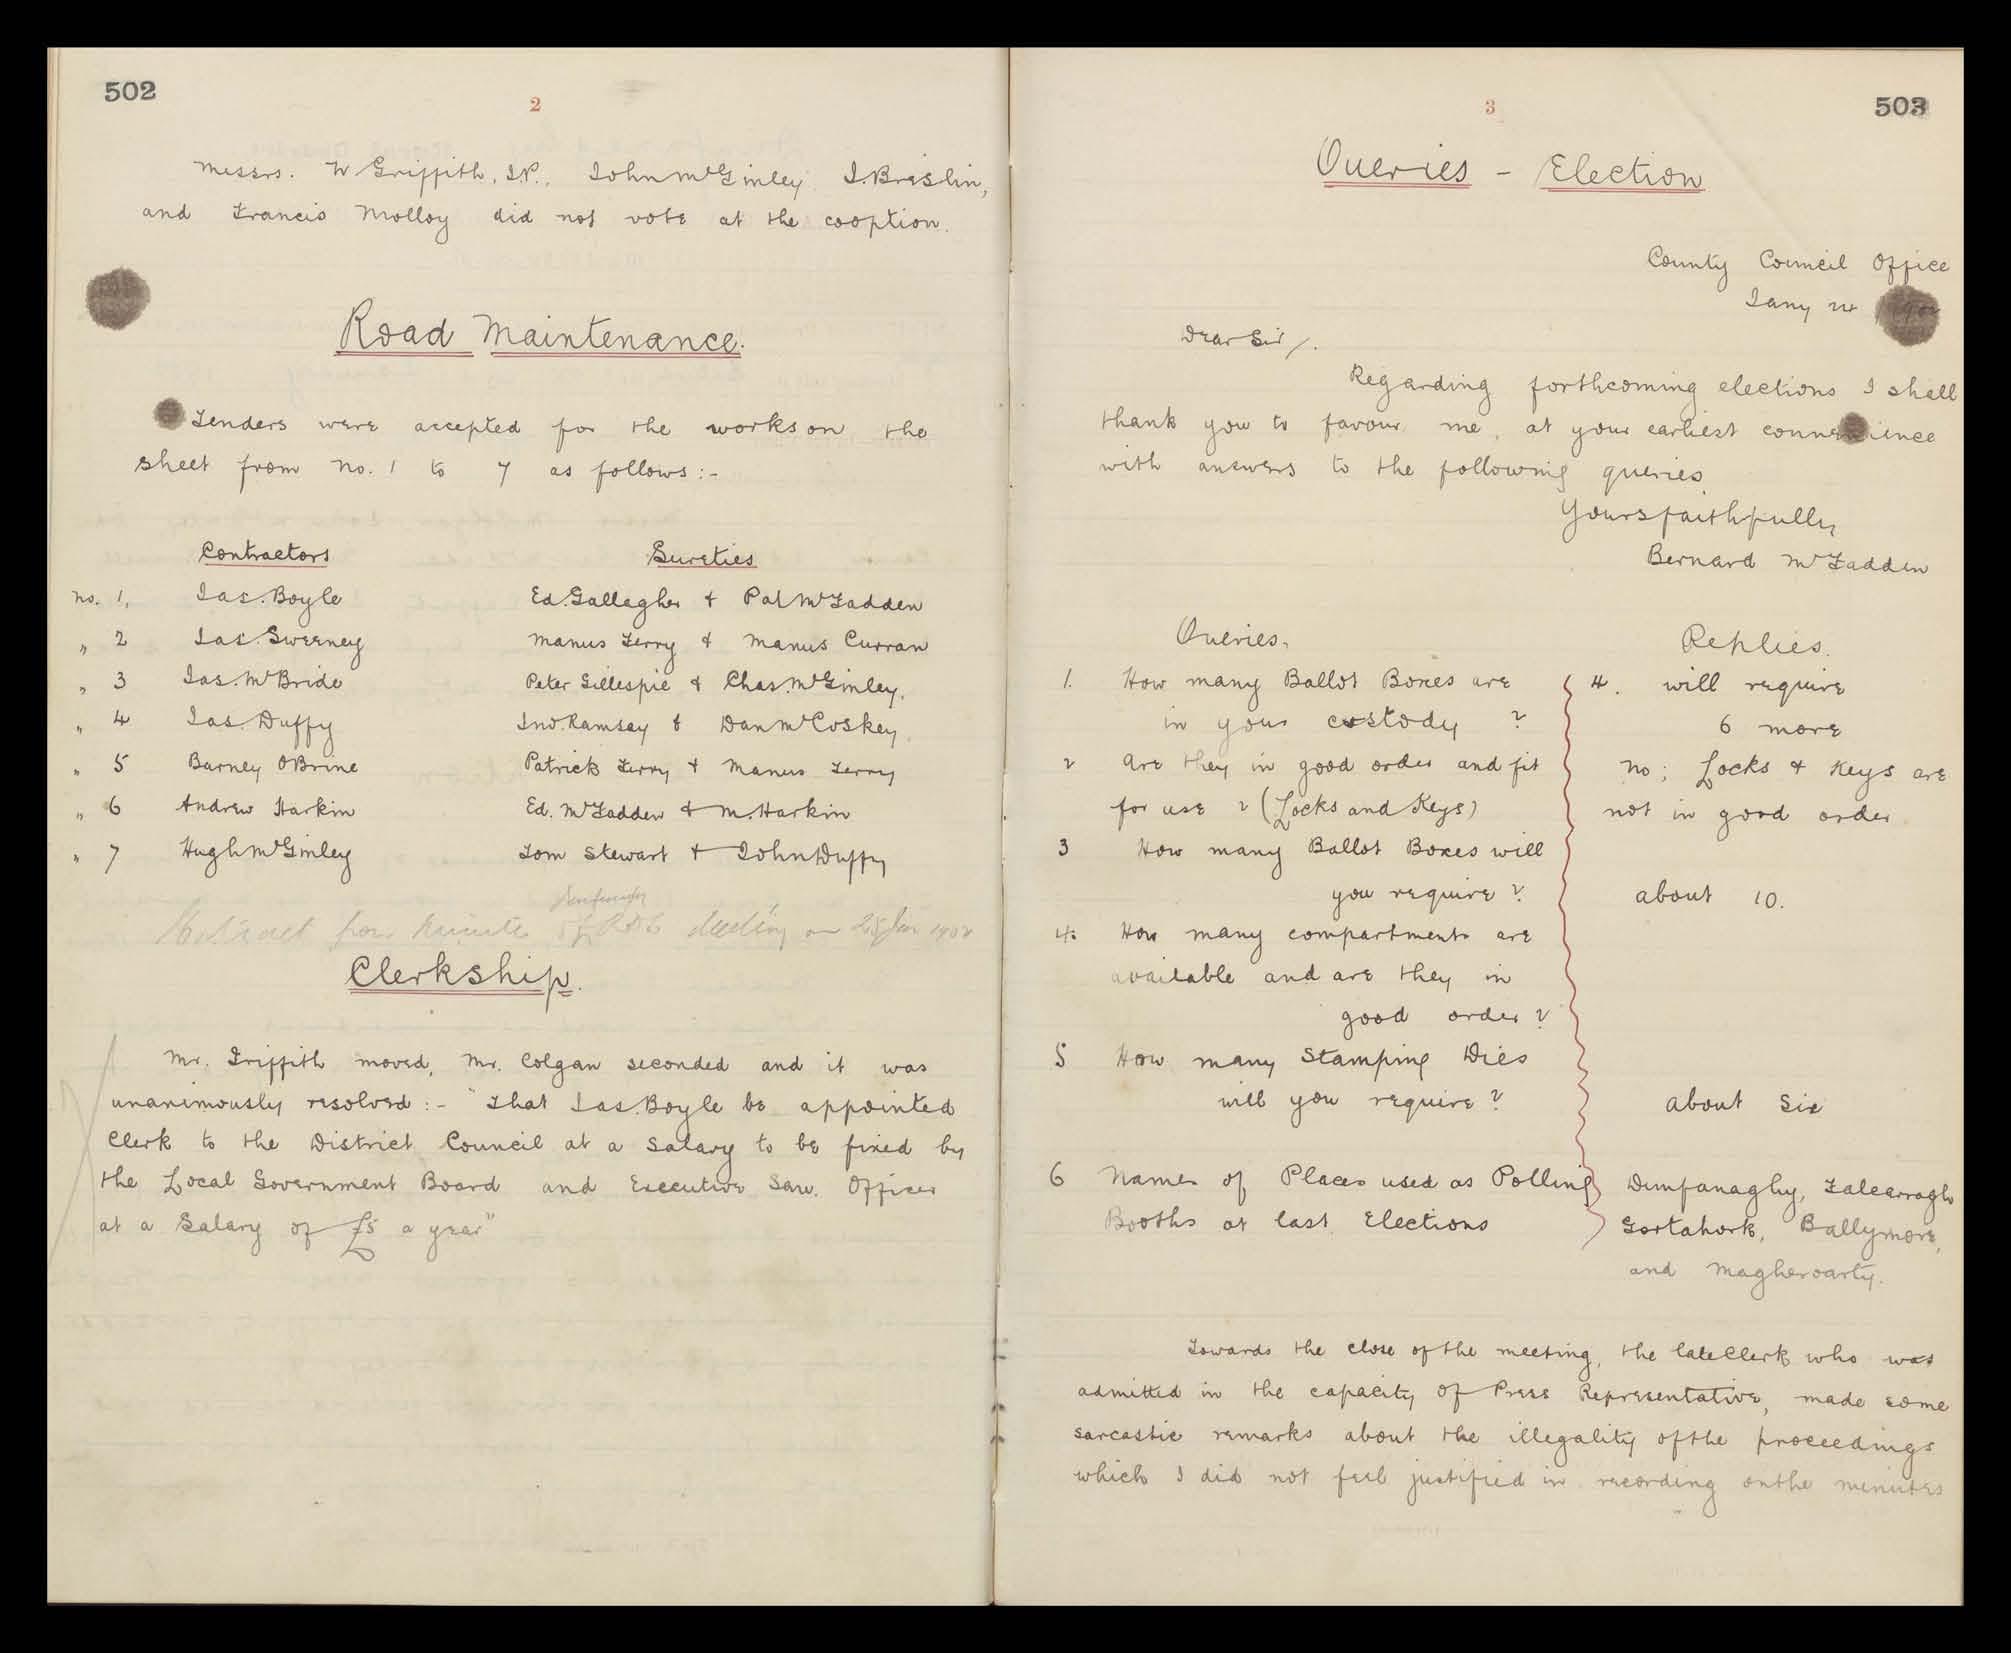 502
2
Messrs. W Griffith, J.P., John McGinley J. Breslin,
and Francis Molloy did not vote at the cooption.
Road Maintenance.
Tenders were accepted for the works on the
sheet from No. 1 to 7 as follows:-
Contractors Sureties
No. 1, Jas. Boyle Ed. Gallagher & Pat McFadden
" 2 Jas. Sweeney Manus Ferry & Manus Curran
" 3 Jas. McBride Peter Gillespie & Chas. McGinley.
" 4 Jas. Duffy Jno. Ramsay & Dan McCoskey.
" 5 Barney O'Brine Patrick Ferry & Manus Ferry
" 6 Andrew Harkin Ed. McFadden & M. Harkin
" 7 Hugh McGinley Tom Stewart & John Duffy
Dunfanaghy
Abstract from Minute of RDC Meeting on 25 Jan 1902
Clerkship.
Mr. Griffith moved, Mr. Colgan seconded and it was
unanimously resolved:- "That Jas. Boyle be appointed
Clerk to the District Council at a Salary to be fixed by
the Local Government Board and Executive San. Officer
at a Salary of £5 a year"
503
3
Queries - Election
County Council Office
Jany 24 1902
Dear Sir/.
Regarding forthcoming elections I shall
thank you to favour me, at your earliest connvenience
with answers to the following queries
Yours faithfully,
Bernard McFadden
Queries. Replies.
1. How many Ballot Boxes are 4. will require
in your custody ? 6 more
2 Are they in good order and fit No; Locks & Keys are
for use ? (Locks and Keys) not in good order
3 How many Ballot Boxes will
you require ? about 10.
4. How many compartments are
available and are they in
good order ?
5 How many Stamping Dies
will you require ? about Six
6 Names of Places used as Polling Dunfanaghy, Falcarragh
Booths at last Elections Gortahork, Ballymore,
and Magheroarty.
Towards the close of the meeting, the late Clerk who was
admitted in the capacity of Press Representative, made some
sarcastic remarks about the illegality of the proceedings
which I did not feel justified in recording on the minutes